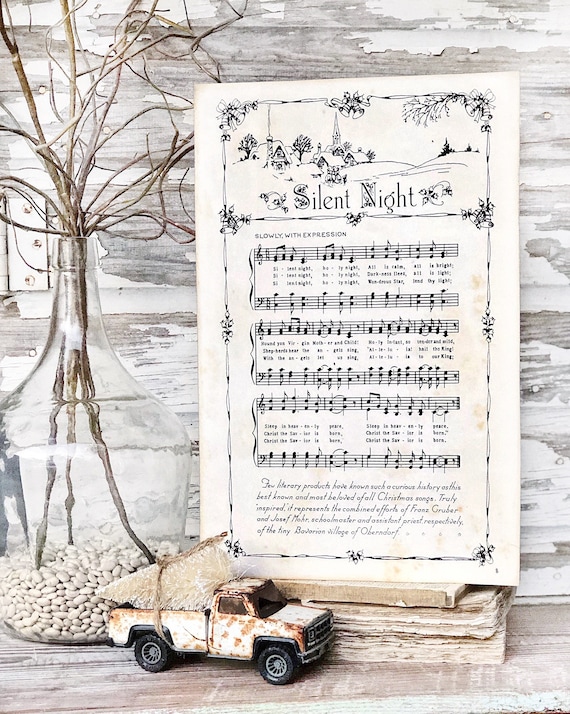 Silent Night
SLOWLY, WITH EXPRESSION
Si - lent night, ho - ly night, All is calm, all is bright;
Si - lent night, ho - ly night, Dark-ness flees, all is light;
Si - lent night, ho - ly night, Won-drous Star, lend thy light;
Round yon Vir - gin Moth - er and Child! Ho - ly In-fant, so ten-der and mild,
Shep-herds hear the an - gels sing, "Al - le - lu - ia! hail the King!
With the an-gels let us sing, Al - le - lu - ia to our King;
Sleep in heav - en - ly peace, Sleep in heav - en - ly peace.
Christ the Sav - ior is born, Christ the Sav - ior is born."
Christ the Sav - ior is born, Christ the Sav - ior is born.
Few literary products have known such a curious history as this
best known and most beloved of all Christmas songs. Truly
inspired, it represents the combined efforts of Franz Gruber
and Josef Mohr, schoolmaster and assistant priest, respectively,
of the tiny Bavarian village of Oberndorf.